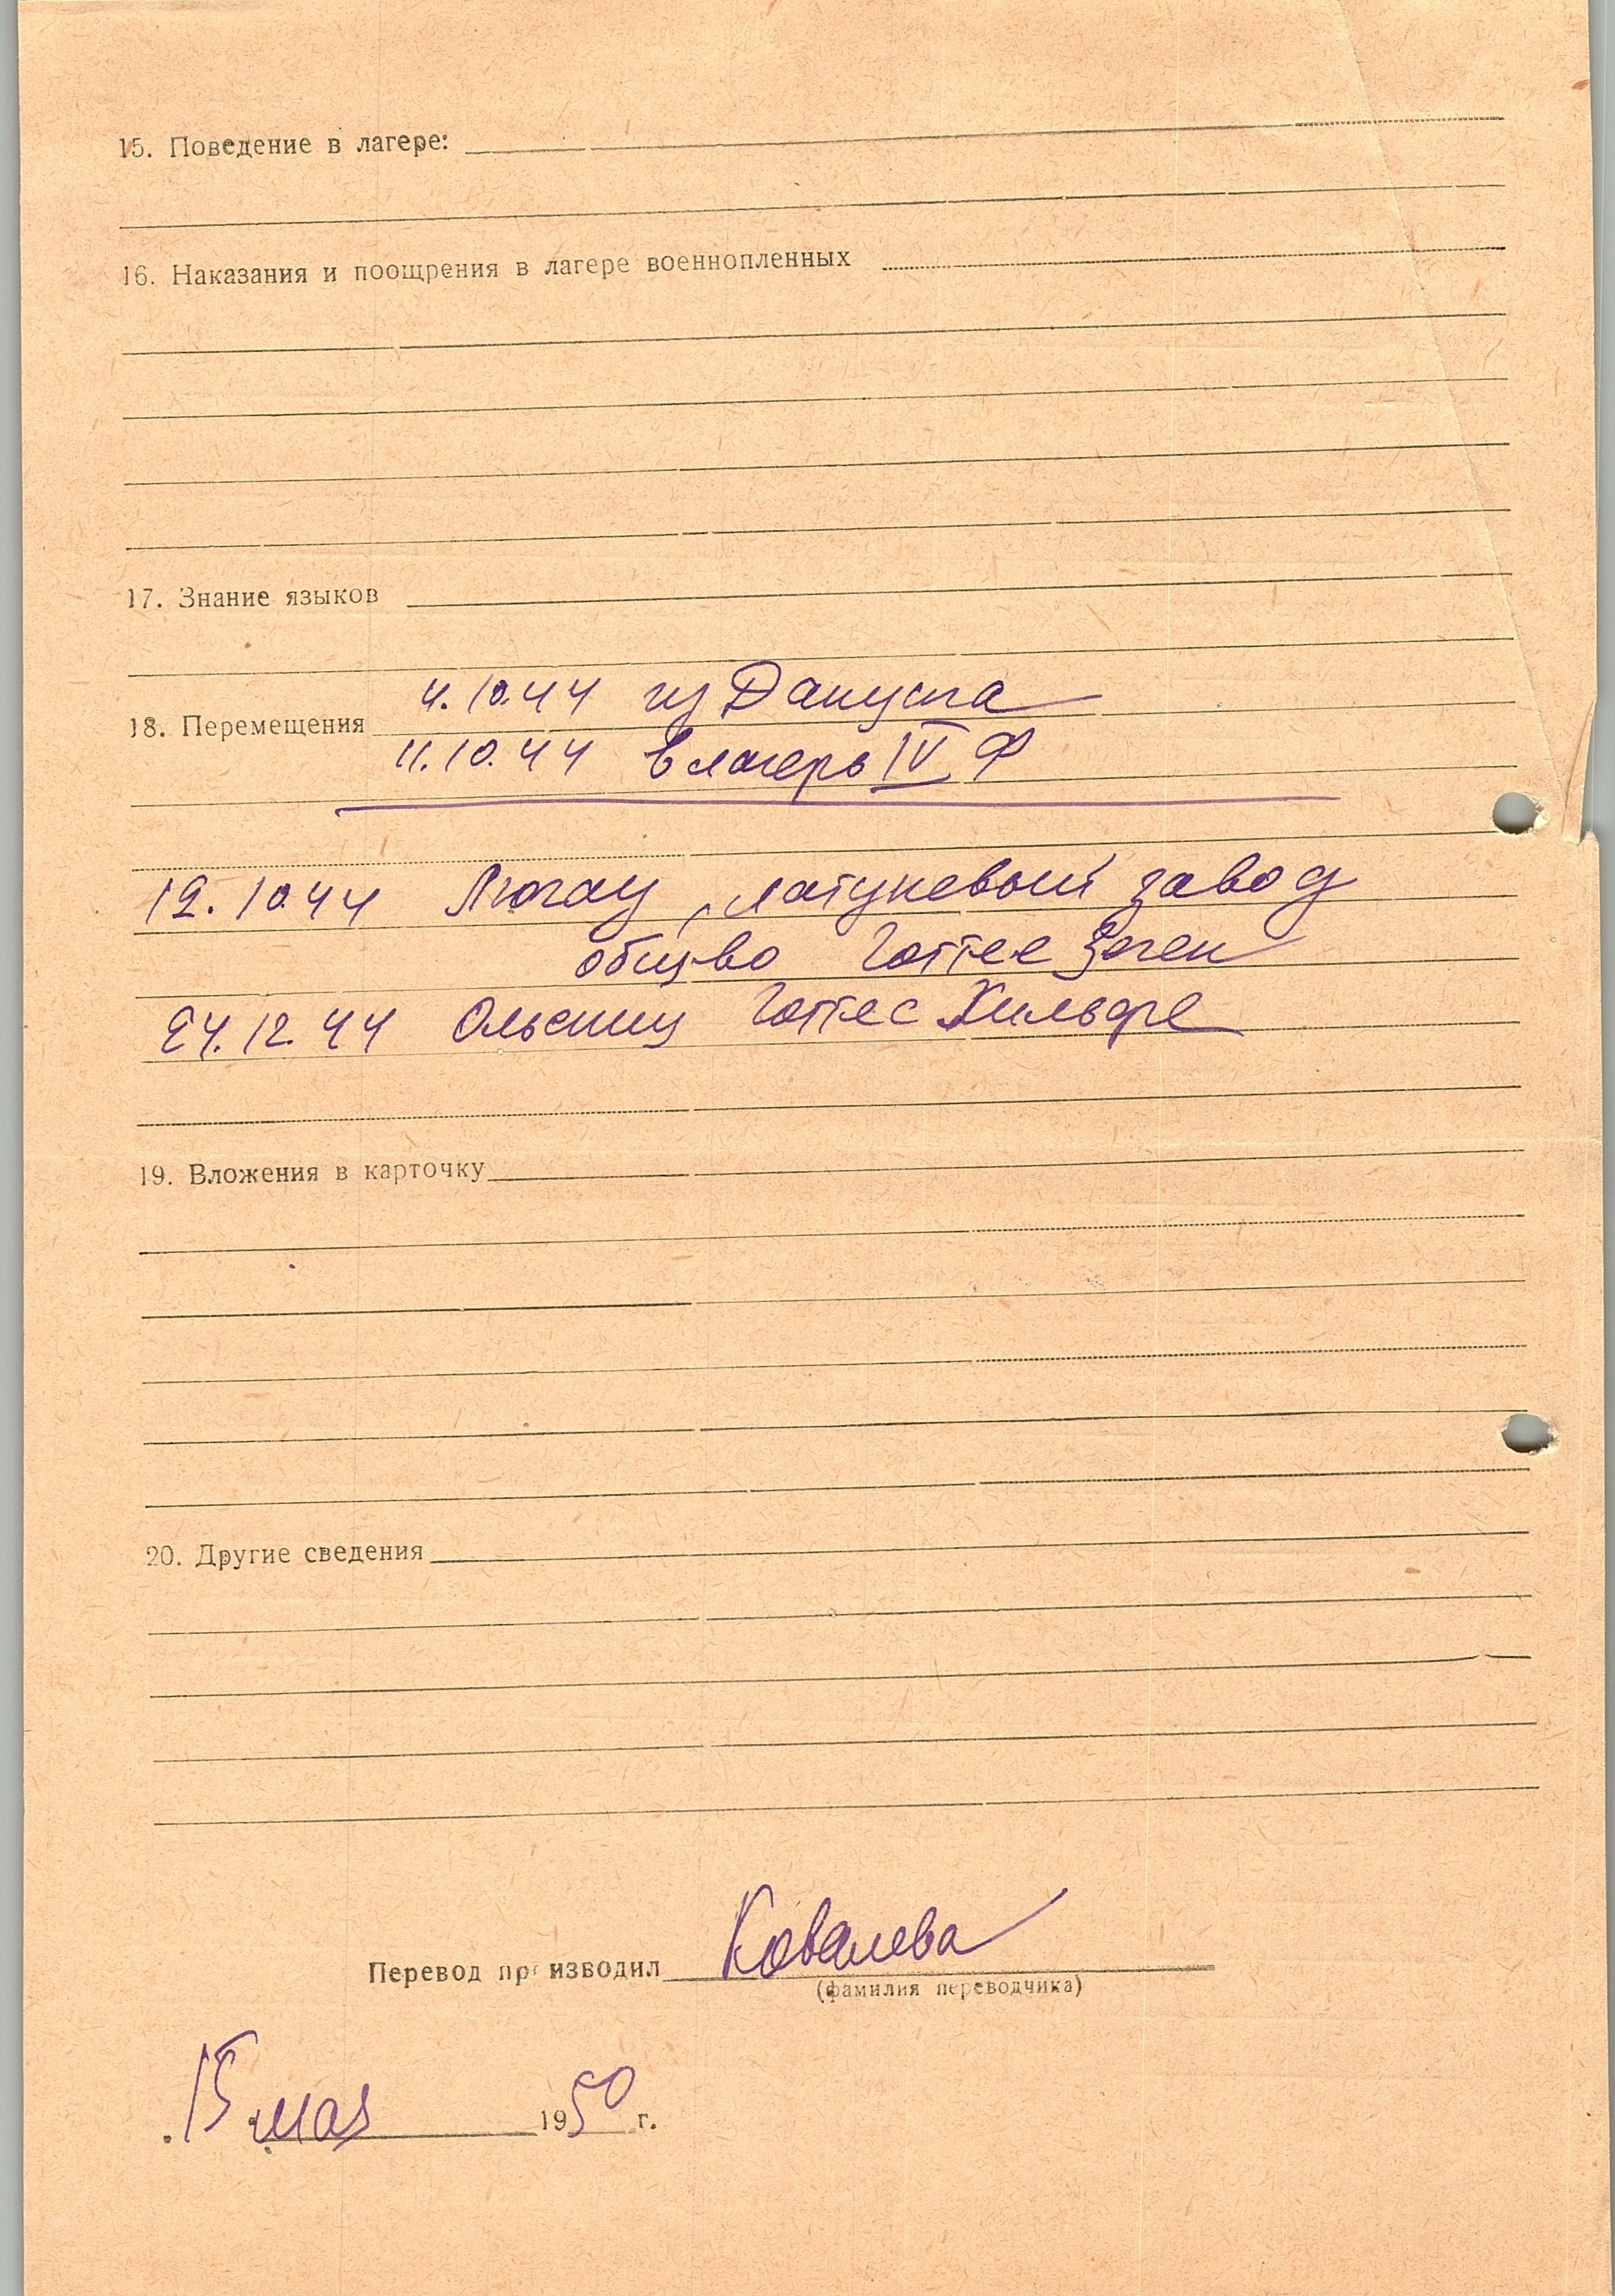 15. Поведение в лагере:
16. Наказания и поощрения в лагере военнопленных
17. Знание языков
4.10.44 из Дануста
18. Перемещения
11.10.44 в лагерь IV Ф
12.10.44 Люгау, латуневый завод
общ-во Готтес Зеген
24.12.44 Ольсниц Готтес Хильфе
19. Вложения в карточку
20. Другие сведения
Перевод производил Ковалева
(фамилия переводчика)
15 мая 1950 г.